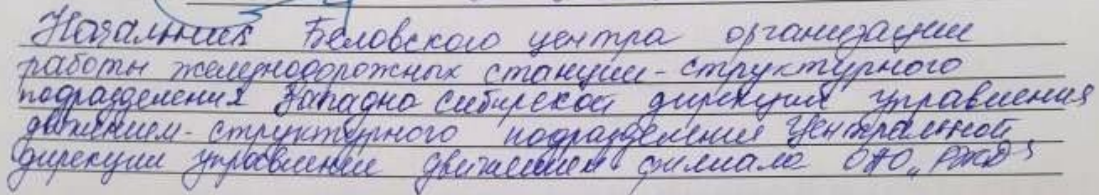 Начальник Беловского центра организации
работы железнодорожных станции - структурного
подразделения Западно сибирской дирекции управления
движением - структурного подразделения Центральной
дирекции управления движением филиала ОАО „РЖД"